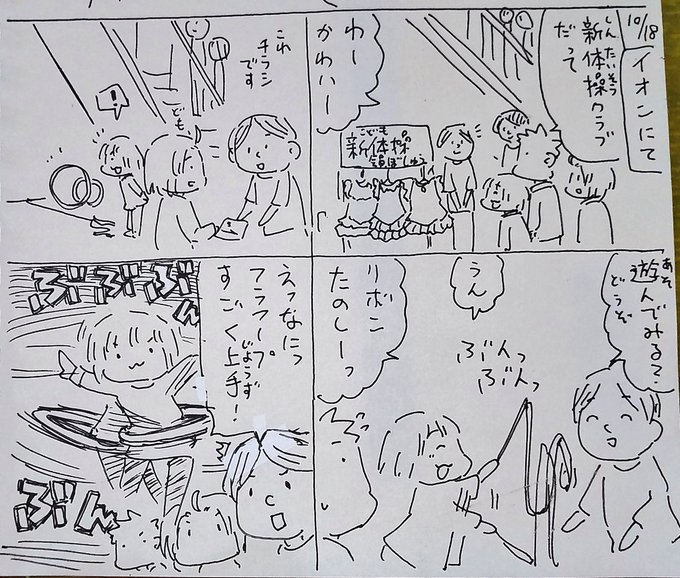 10/18
イオンにて
しんたいそう
新体操クラブ
だって
わー
かわいー
こども
新体操
員ぼしゅう
これ
チラシ
です
ども
!
あそ
遊んでみる?
どうぞ
うん
ぶんっ
ぶんっ
リボン
たのしーっ
えっなにっ
フラフープ
じょうず
すごく上手!
ぶんぶんぶん
ぶん